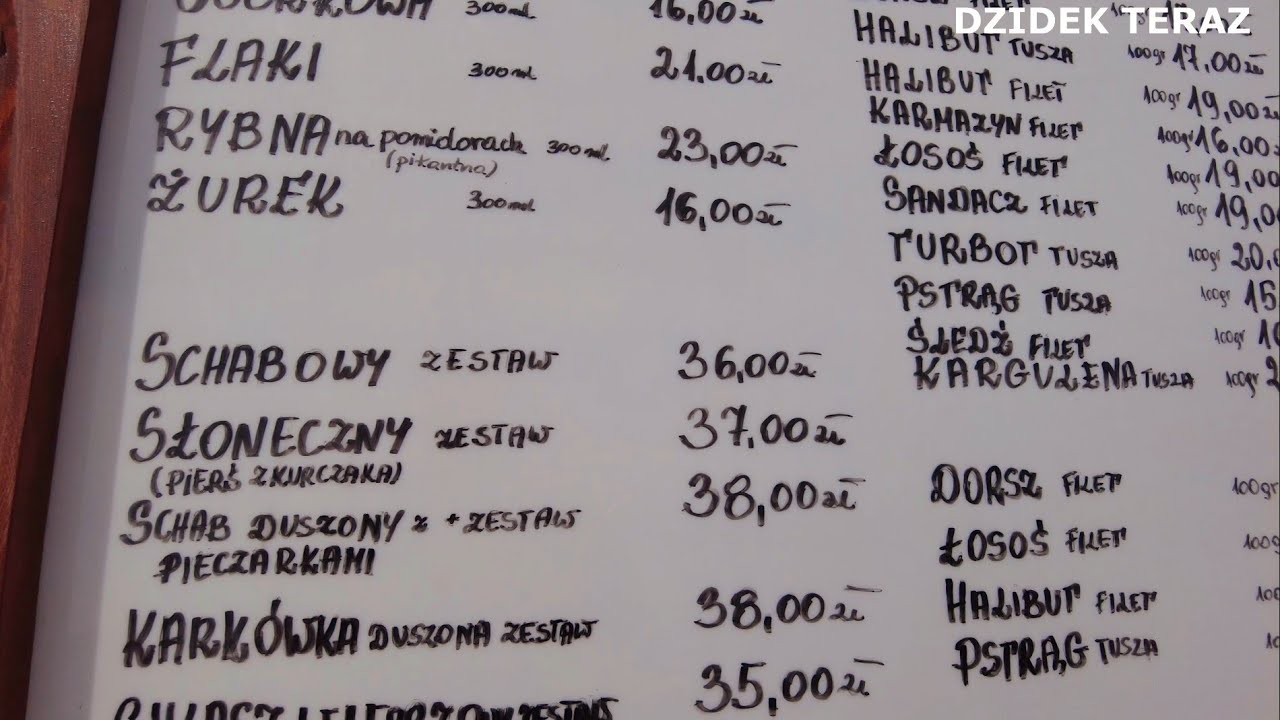 DZIDEK TERAZ
300ml 16,00zł
FLAKI 300ml 21.00zł
RYBNA na pomidorach 300ml 23,00zł
(pikantna)
ŻUREK 300ml 16,00zł
SCHABOWY ZESTAW 36,00zł
SŁONECZNY ZESTAW 37,00zł
(PIERŚ Z KURCZAKA)
SCHAB DUSZONY z + ZESTAW 38,00zł
PIECZARKAMI
KARKÓWKA DUSZONA ZESTAW 38,00zł
ZESTAW 35,00zł
HALIBUT TUSZA 100gr 17,00zł
HALIBUT FILET 100gr 19,00zł
KARMAZYN FILET 100gr 16,00zł
ŁOSOŚ FILET 100gr 19,00
SANDACZ FILET 100gr 19,0
TURBOT TUSZA 100gr 20,0
PSTRĄG TUSZA 100gr 15
ŚLEDŹ FILET 100gr
KARGULENA TUSZA 100gr 2
DORSZ FILET 100gr
ŁOSOŚ FILET 100g
HALIBUT FILET 10
PSTRĄG TUSZA 10